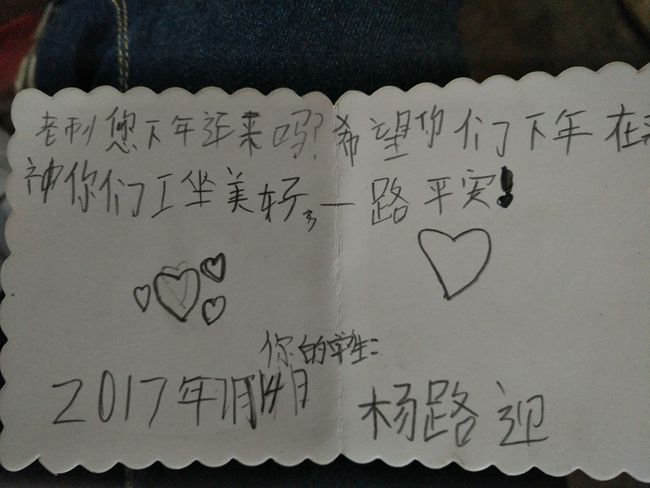 老师您下年还来吗?希望你们下年在来
神你们工坐美好,一路平安!
你的学生:
2017年7月14月
杨路迎